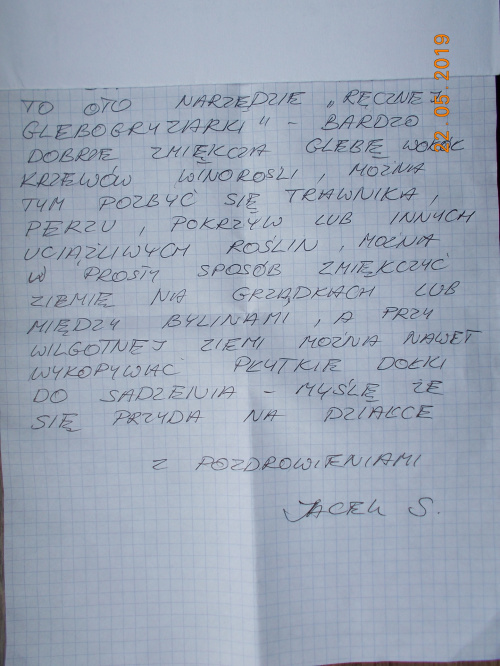 TO OTO NARZĘDZIE „RĘCZNEJ
GLEBOGRYZIARKI" - BARDZO
DOBRZE ZMIĘKCZA GLEBĘ WOKÓŁ
KRZEWÓW WINOROŚLI, MOŻNA
TYM POZBYĆ SIĘ TRAWNIKA,
PERZU, POKRZYW LUB INNYCH
UCIĄŻLIWYCH ROŚLIN, MOŻNA
W PROSTY SPOSÓB ZMIĘKCZYĆ
ZIEMIĘ NA GRZĄDKACH LUB
MIĘDZY BYLINAMI, A PRZY
WILGOTNEJ ZIEMI MOŻNA NAWET
WYKOPYWAĆ PŁYTKIE DOŁKI
DO SADZENIA - MYŚLĘ ŻE
SIĘ PRZYDA NA DZIAŁCE
Z POZDROWIENIAMI
JACEK S.
22.05.2019